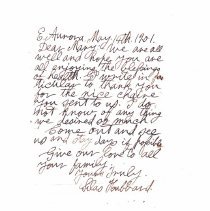 E. Aurora May 14th 1901.
Dear Mary. We are all
well and hope you are
all enjoying the blessings
of health. I write in par
ticular to thank you
for the nice
you sent to us. I do
not know of any thing
we desired so much.
Come out and see
us and stay days if possible
Give our love to all
your family.
Yours truly.
Silas Hubbard